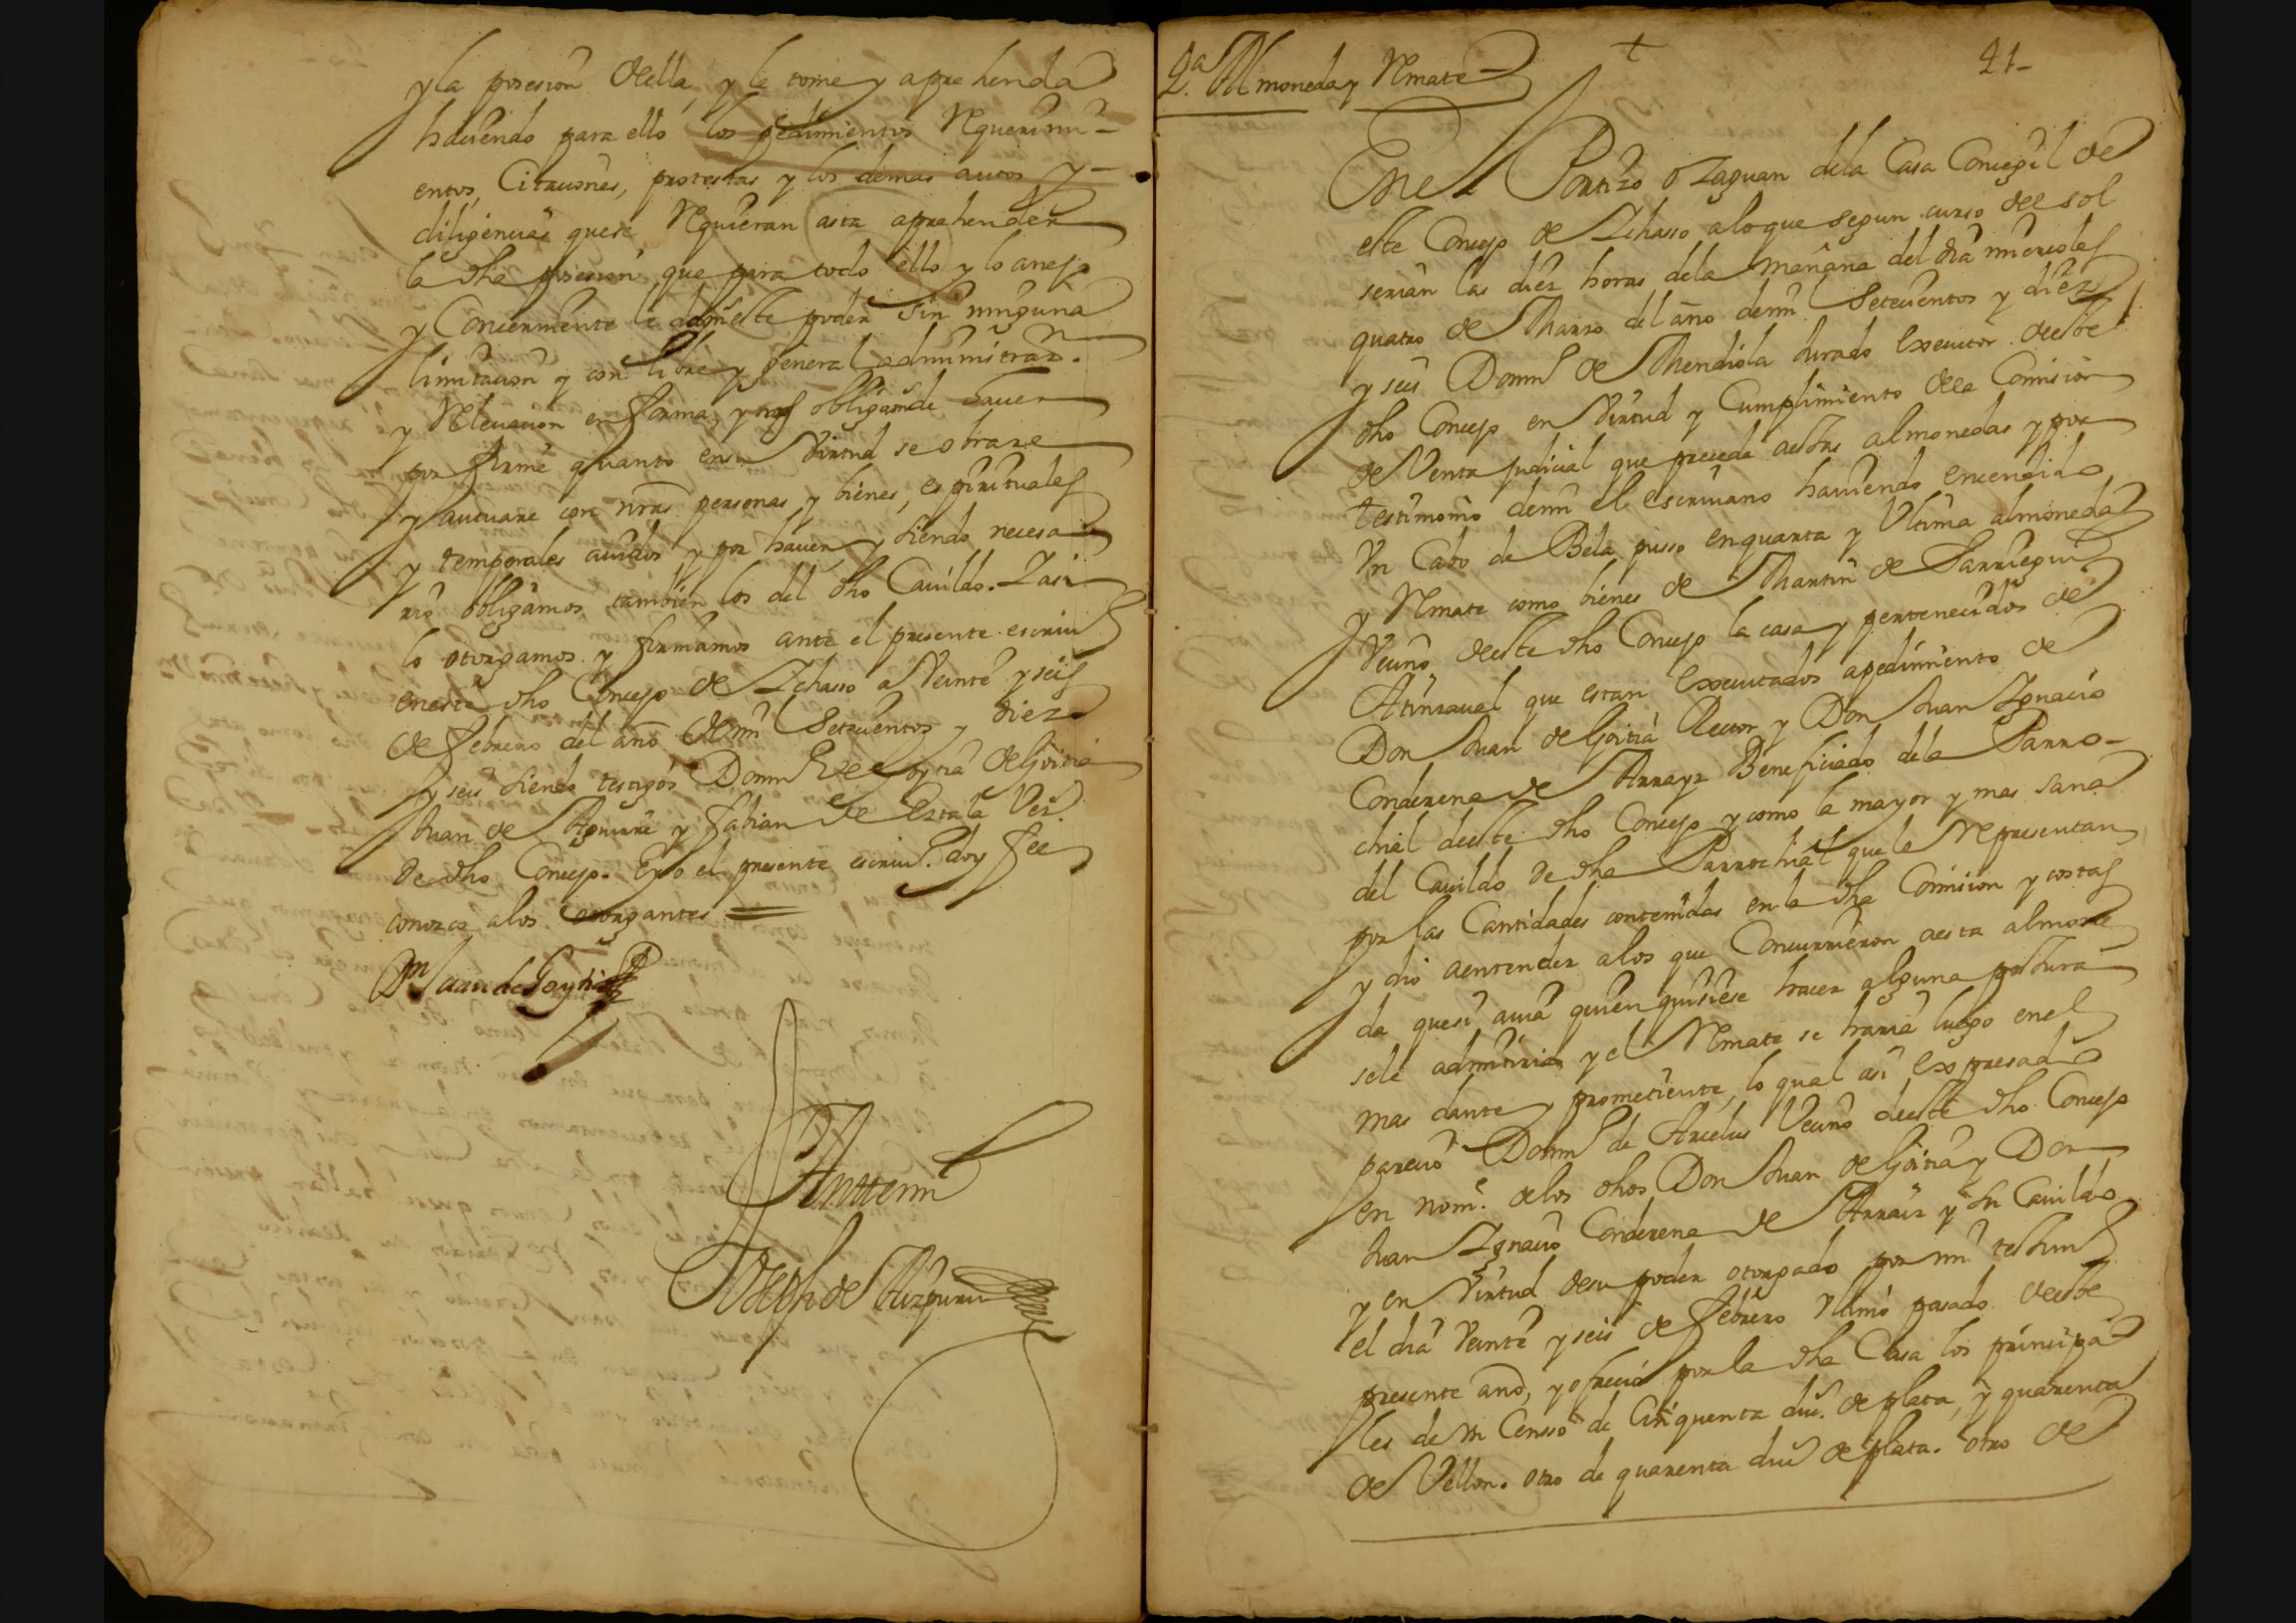 y la posesion de ella, y le tome y aprehenda
haciendo para ello los pedimientos Requerimi-
entos, Citaciones, protestas y los demas autos y
diligencias que se Requieran asta aprehender
la dha posesion que para todo ello y lo anejo
y Concerniente le damos este poder Sin ninguna
limitacion y con libre y general administraon.
y Relevacion en forma, y nos obligamos de haver
por firme quanto en su Virtud se obrare
y actuare con nras personas y bienes, espirituales
y temporales avidos y por haver, y siendo necesa
rio obligamos tambien los del dho Cavildo. Y asi
lo otorgamos y firmamos ante el presente escriuo
en este dho Concejo de Ichasso a Veinte y seis
de febrero del año de mil Setecientos y diez
y seis siendo testigos Domin de Goytia
Juan de Aguirre y fabian de Estala Veos.
de dho Concejo. E yo el presente escriuo. doy fee
conozco a los otorgantes =
Dn Juan de Goytia
Ante mi
Joseph de Aizpuru
4a. Almoneda y Remate
41-
En el Portico o Zaguan dela Casa Concegil de
este Concejo de Ichasso alo que segun curso del sol
serian las diez horas dela Mañana del dia miercoles
quatro de Marzo del año de mil Setecientos y diez
y seis Domin de Mendiola Jurado Executor de este
dho Concejo en Virtud y Cumplimiento dela Comision
de Venta judicial que precede a estas almonedas y por
testimonio de mi el escrivano haviendo encendido
Un Cabo de Bela pusso en quarta y Ultima almoneda
y Remate como bienes de Martin de Sarriegui
Vecino de este dho Concejo la casa y pertenecidos de
Atinsavel que estan Executados a pedimiento de
Don Juan de Goitia Rector y Don Juan Ignacio
Conderena de Arrayz Beneficiado dela Parro-
chial de este dho Concejo y como la mayor y mas sana
del Cavildo de dha Parrochial que le Representan
por las Cantidades contenidas en la dha Comision y costas
y dio aentender alos que Concurrieron aesta almone
da que si avia quien quisiese hacer alguna postura
se le admitiria y el Remate se haria luego en el
mas dante y prometiente, lo qual asi Expresado
parecio Domin de Arcelus Vecino de este dho Concejo
en nome. de los dhos Don Juan de Goitia y Don
Juan Ignacio Conderena de Arraiz y su Cavildo
y en Virtud de su poder otorgado por mi testimo
el dia Veinte y seis de febrero Ultimo pasado de este
presente año, y ofrecio por la dha Casa los principa
les de Un Censso de Cinquenta dus. de plata, y quarenta
de Vellon. otro de quarenta dus de plata. otro de